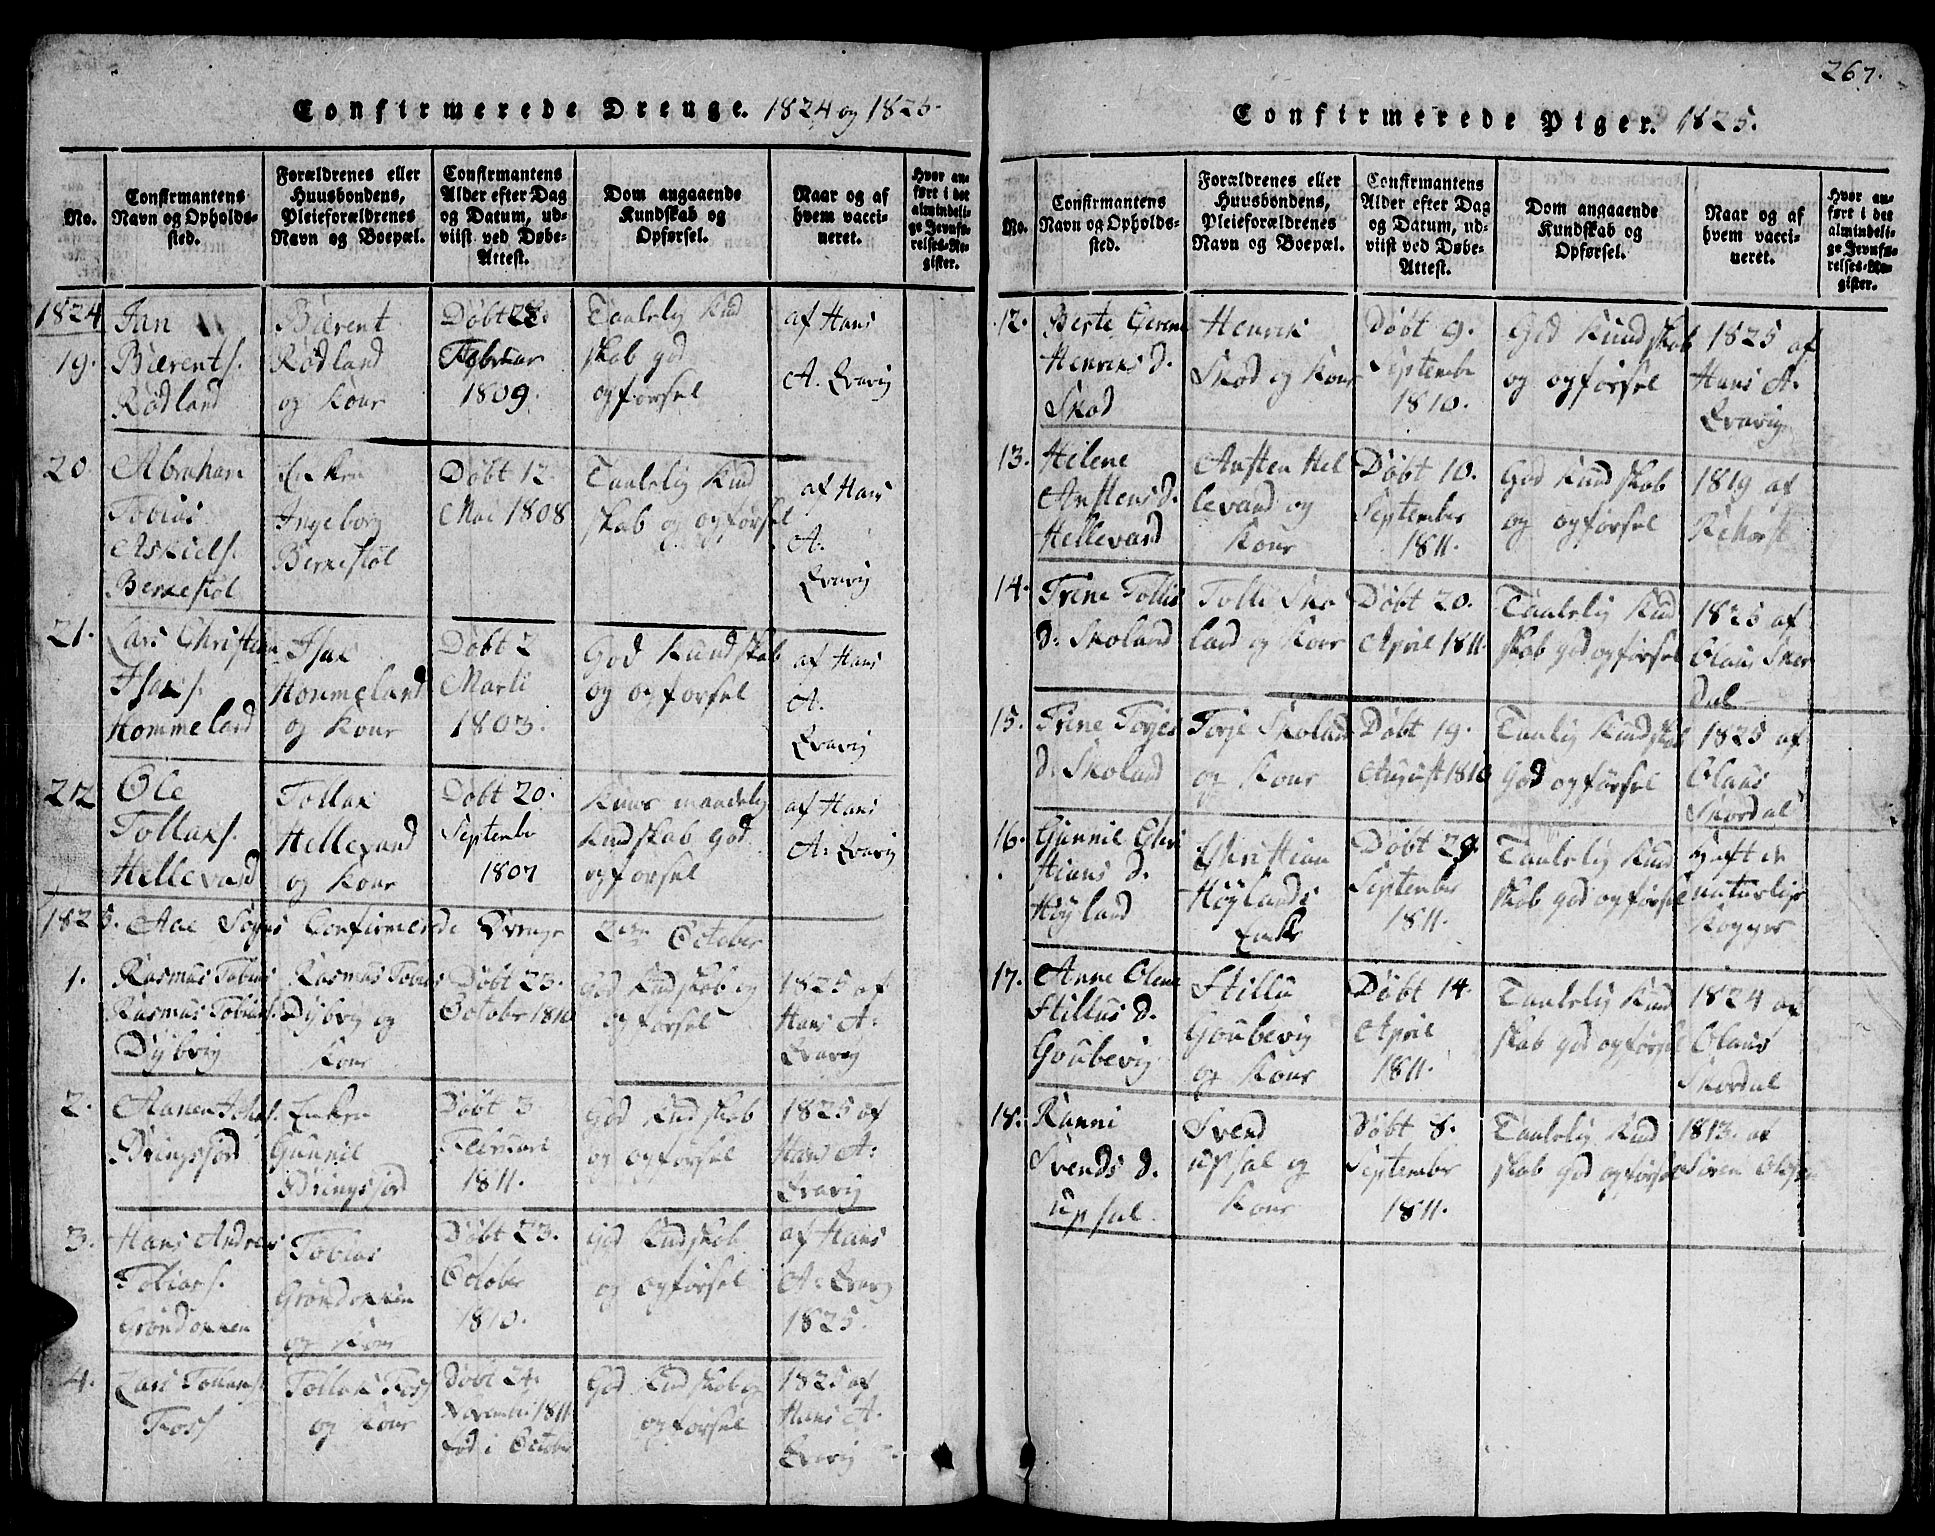 Confirmerede Drenge. 1824 og 1825.
No.
Confirmantens
Navn og Opholds-
sted.
Forældrenes eller
Huusbondens,
Pleieforældrenes
Navn og Boepæl.
Confirmantens
Alder efter Dag
og Datum, ud-
viist ved Døbe-
Attest.
Dom angaaende
Kundskab og
Opførsel.
Naar og af
hvem vacci-
neret.
Hvor an-
ført i det
almindeli-
ge Jevnfø-
relses-Re-
gister.
1824
19.
Jan
Bærents.
Rødland
Bærent
Rødland
og Kone
Døbt 28.
Februar
1809.
Taalelig Kund
skab god
opførsel
af Hans
A. Evavig
20
Abraham
Tobias
Askiels.
Berrestøl
Enken
Ingeborg
Berrestøl
Døbt 12.
Mai 1808
Taalelig Kund
skab og opførsel
af Hans
A.
Evavig
21.
Lars Christian
Isaks.
Hommeland
Isak
Hommeland
og Kone
Døbt 2
Marti
1803.
God Kundskab
og opførsel
af Hans
A.
Evavig
22
Ole
Tollaks.
Hellevand
Tollak
Hellevand
og Kone
Døbt 20.
Septembr
1807
Kuns maadelig
Kundskab god
opførsel
af Hans
A. Evavig
1825. Aae Sogns Confirmerede Drenge 2den October
1.
Rasmus Tobias
Rasmus Tobias.
Dybvig
Rasmus Tobias
Dybvig og
Kone
Døbt 23.
October 1810
God Kundskab og
opførsel
1825 af
Hans A.
Evavig
2.
Aanen
Bringsjord
Enken
Gunnil
Bringsjord
Døbt 3
Februari
1811.
God Kundskab
og opførsel
1825 af
Hans A.
Evavig
3.
Hans Andreas
Tobias.
Grøndokken
Tobias
Grøndokken
og Kone
Døbt 23.
October
1810.
God Kundskab
og opførsel
af Hans
A. Evavig
1825.
4.
Lars Tollaks.
Foss
Tollak Foss
og Kone
Døbt 24.
November 1811
fød i October
God Kundskab og
opførsel
1825 af
Hans A.
Evavig
267.
Confirmerede Piger. 1825.
No.
Confirmantens
Navn og Opholds-
sted.
Forældrenes eller
Huusbondens,
Pleieforældrenes
Navn og Boepæl.
Confirmantens
Alder efter Dag
og Datum, ud-
viist ved Døbe-
Attest.
Dom angaaende
Kundskab og
Opførsel.
Naar og af
hvem vacci-
neret.
Hvor an-
ført i det
almindeli-
ge Jevnfø-
relses-Re-
gister.
12.
Berte Serene
Henriks d.
Skod
Henrik
Skod og Kone
Døbt 9.
Septembr
1810.
God Kundskab
og opførsel
1825 af
Hans A.
Evavig
13.
Helene
Anstens d.
Hellevand
Ansten Hel
levand og
Kone
Døbt 10.
September
1811.
God Kundskab
og opførsel
1819 af
Rehorst
14.
Trene Tollis
d. Skoland
Tolli Sko
land og Kone
Døbt 20.
April 1811.
Taalelig Kund
skab god opførsel
1825 af
Olaus Skor
dal
15.
Trene Torjes
d. Skoland
Torje Skoland
og Kone
Døbt 19.
August 1810
Taalig Kundskab
God opførsel
1825 af
Olaus
Skordal
16.
Gunnil Chri
stians d.
Høyland
Christian
Høylands
Enke
Døbt 29.
September
1811.
Taalelig Kund
skab god opførsel
haft de
naturlige
Kopper
17.
Anne Olene
Stillus d.
Goubevig
Stillu
Goubevig
og Kone
Døbt 14.
April
1811.
Taalelig Kund
skab god opførsel
1824 av
Olaus
Skordal
18.
Ranni
Svends d.
Upsal
Svend
Upsal og
Kone
Døbt 8.
September
1811.
Taalelig Kund
skab God opførsel
1813. af
Søren Olsen